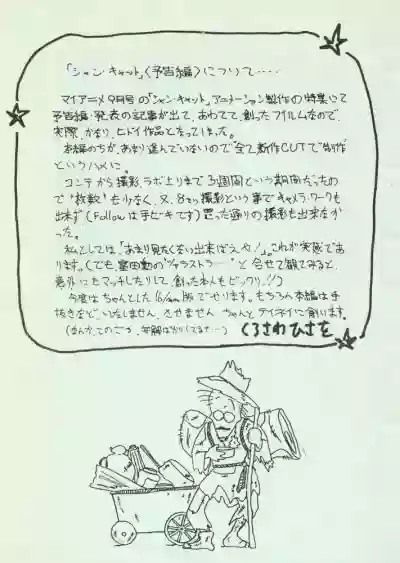 「シャン・キャット」〈予告編〉について‥‥
マイアニメ9月号の「シャン・キャット」アニメーション製作の特集にて
予告編・発表の記事が出て、あわてて、創ったフイルムなので、
実際、かなり、ヒドイ作品となってしまった。
本編のちが、あまり進んでいないので全て新作CUTで"制作"
というハメに。
コンテから撮影、ラボ上りまで3週間という期間だったの
で"枚数"も少なく、又、8ミリ撮影という事でキャメラ・ワークも
出来ず(Followは手ビキです)思った通りの撮影も出来なか
った。
私としては、「あまり見たくない出来ばえヤ!」。これが実感であ
ります。(でも、冨田勲の と合せて観てみると、
意外にもマッチしたりして、創った本人もビックリ。!!)
今度はちゃんとした16mm版でやります。もちろん本編は手
抜きなど、いたしません、させません ちゃんと、テイネイに創ります。
くろさわひさを